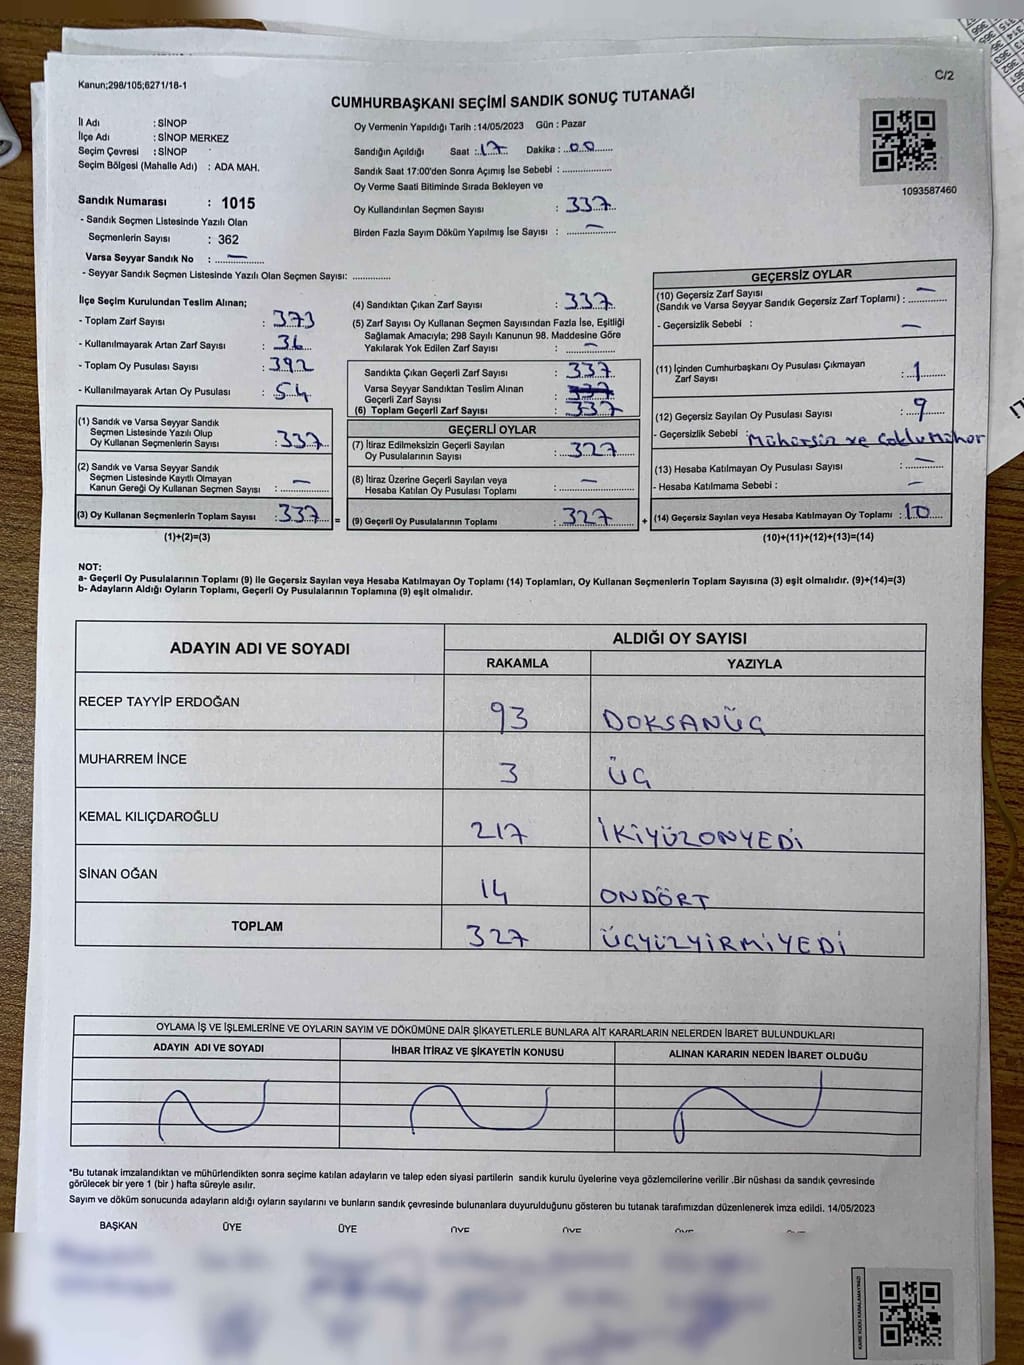 Kanun;298/105;6271/18-1
C/2
CUMHURBAŞKANI SEÇİMİ SANDIK SONUÇ TUTANAĞI
İl Adı : SİNOP
İlçe Adı : SİNOP MERKEZ
Seçim Çevresi : SİNOP
Seçim Bölgesi (Mahalle Adı) : ADA MAH.
Oy Vermenin Yapıldığı Tarih :14/05/2023 Gün : Pazar
Sandığın Açıldığı Saat : 17 Dakika : 00
Sandık Saat 17:00'den Sonra Açımış İse Sebebi :
Oy Verme Saati Bitiminde Sırada Bekleyen ve
Oy Kullandırılan Seçmen Sayısı : 337
Birden Fazla Sayım Döküm Yapılmış İse Sayısı : —
1093587460
Sandık Numarası : 1015
- Sandık Seçmen Listesinde Yazılı Olan
Seçmenlerin Sayısı : 362
Varsa Seyyar Sandık No : —
- Seyyar Sandık Seçmen Listesinde Yazılı Olan Seçmen Sayısı:
İlçe Seçim Kurulundan Teslim Alınan;
- Toplam Zarf Sayısı : 373
- Kullanılmayarak Artan Zarf Sayısı : 36
- Toplam Oy Pusulası Sayısı : 392
- Kullanılmayarak Artan Oy Pusulası : 54
(1) Sandık ve Varsa Seyyar Sandık
Seçmen Listesinde Yazılı Olup
Oy Kullanan Seçmenlerin Sayısı : 337
(2) Sandık ve Varsa Seyyar Sandık
Seçmen Listesinde Kayıtlı Olmayan
Kanun Gereği Oy Kullanan Seçmen Sayısı : —
(3) Oy Kullanan Seçmenlerin Toplam Sayısı : 337
(1)+(2)=(3)
(4) Sandıktan Çıkan Zarf Sayısı : 337
(5) Zarf Sayısı Oy Kullanan Seçmen Sayısından Fazla İse, Eşitliği
Sağlamak Amacıyla; 298 Sayılı Kanunun 98. Maddesine Göre
Yakılarak Yok Edilen Zarf Sayısı : —
Sandıkta Çıkan Geçerli Zarf Sayısı : 337
Varsa Seyyar Sandıktan Teslim Alınan
Geçerli Zarf Sayısı :
(6) Toplam Geçerli Zarf Sayısı : 337
GEÇERLİ OYLAR
(7) İtiraz Edilmeksizin Geçerli Sayılan
Oy Pusulalarının Sayısı : 327
(8) İtiraz Üzerine Geçerli Sayılan veya
Hesaba Katılan Oy Pusulası Toplamı : —
= (9) Geçerli Oy Pusulalarının Toplamı : 327
GEÇERSİZ OYLAR
(10) Geçersiz Zarf Sayısı
(Sandık ve Varsa Seyyar Sandık Geçersiz Zarf Toplamı) : —
- Geçersizlik Sebebi : —
(11) İçinden Cumhurbaşkanı Oy Pusulası Çıkmayan
Zarf Sayısı : 1
(12) Geçersiz Sayılan Oy Pusulası Sayısı : 9
- Geçersizlik Sebebi : Mühürsüz ve Çoklu Mühür
(13) Hesaba Katılmayan Oy Pusulası Sayısı : —
- Hesaba Katılmama Sebebi : —
+ (14) Geçersiz Sayılan veya Hesaba Katılmayan Oy Toplamı : 10
(10)+(11)+(12)+(13)=(14)
NOT:
a- Geçerli Oy Pusulalarının Toplamı (9) ile Geçersiz Sayılan veya Hesaba Katılmayan Oy Toplamı (14) Toplamları, Oy Kullanan Seçmenlerin Toplam Sayısına (3) eşit olmalıdır. (9)+(14)=(3)
b- Adayların Aldığı Oyların Toplamı, Geçerli Oy Pusulalarının Toplamına (9) eşit olmalıdır.
ADAYIN ADI VE SOYADI
ALDIĞI OY SAYISI
RAKAMLA YAZIYLA
RECEP TAYYİP ERDOĞAN 93 DOKSANÜÇ
MUHARREM İNCE 3 ÜÇ
KEMAL KILIÇDAROĞLU 217 İKİYÜZONYEDİ
SİNAN OĞAN 14 ONDÖRT
TOPLAM 327 ÜÇYÜZYİRMİYEDİ
OYLAMA İŞ VE İŞLEMLERİNE VE OYLARIN SAYIM VE DÖKÜMÜNE DAİR ŞİKAYETLERLE BUNLARA AİT KARARLARIN NELERDEN İBARET BULUNDUKLARI
ADAYIN ADI VE SOYADI İHBAR İTİRAZ VE ŞİKAYETİN KONUSU ALINAN KARARIN NEDEN İBARET OLDUĞU
*Bu tutanak imzalandıktan ve mühürlendikten sonra seçime katılan adayların ve talep eden siyasi partilerin sandık kurulu üyelerine veya gözlemcilerine verilir .Bir nüshası da sandık çevresinde
görülecek bir yere 1 (bir ) hafta süreyle asılır.
Sayım ve döküm sonucunda adayların aldığı oyların sayılarını ve bunların sandık çevresinde bulunanlara duyurulduğunu gösteren bu tutanak tarafımızdan düzenlenerek imza edildi. 14/05/2023
BAŞKAN ÜYE ÜYE ÜYE ÜYE ÜYE
KARE KODU KARALAMAYINIZ!